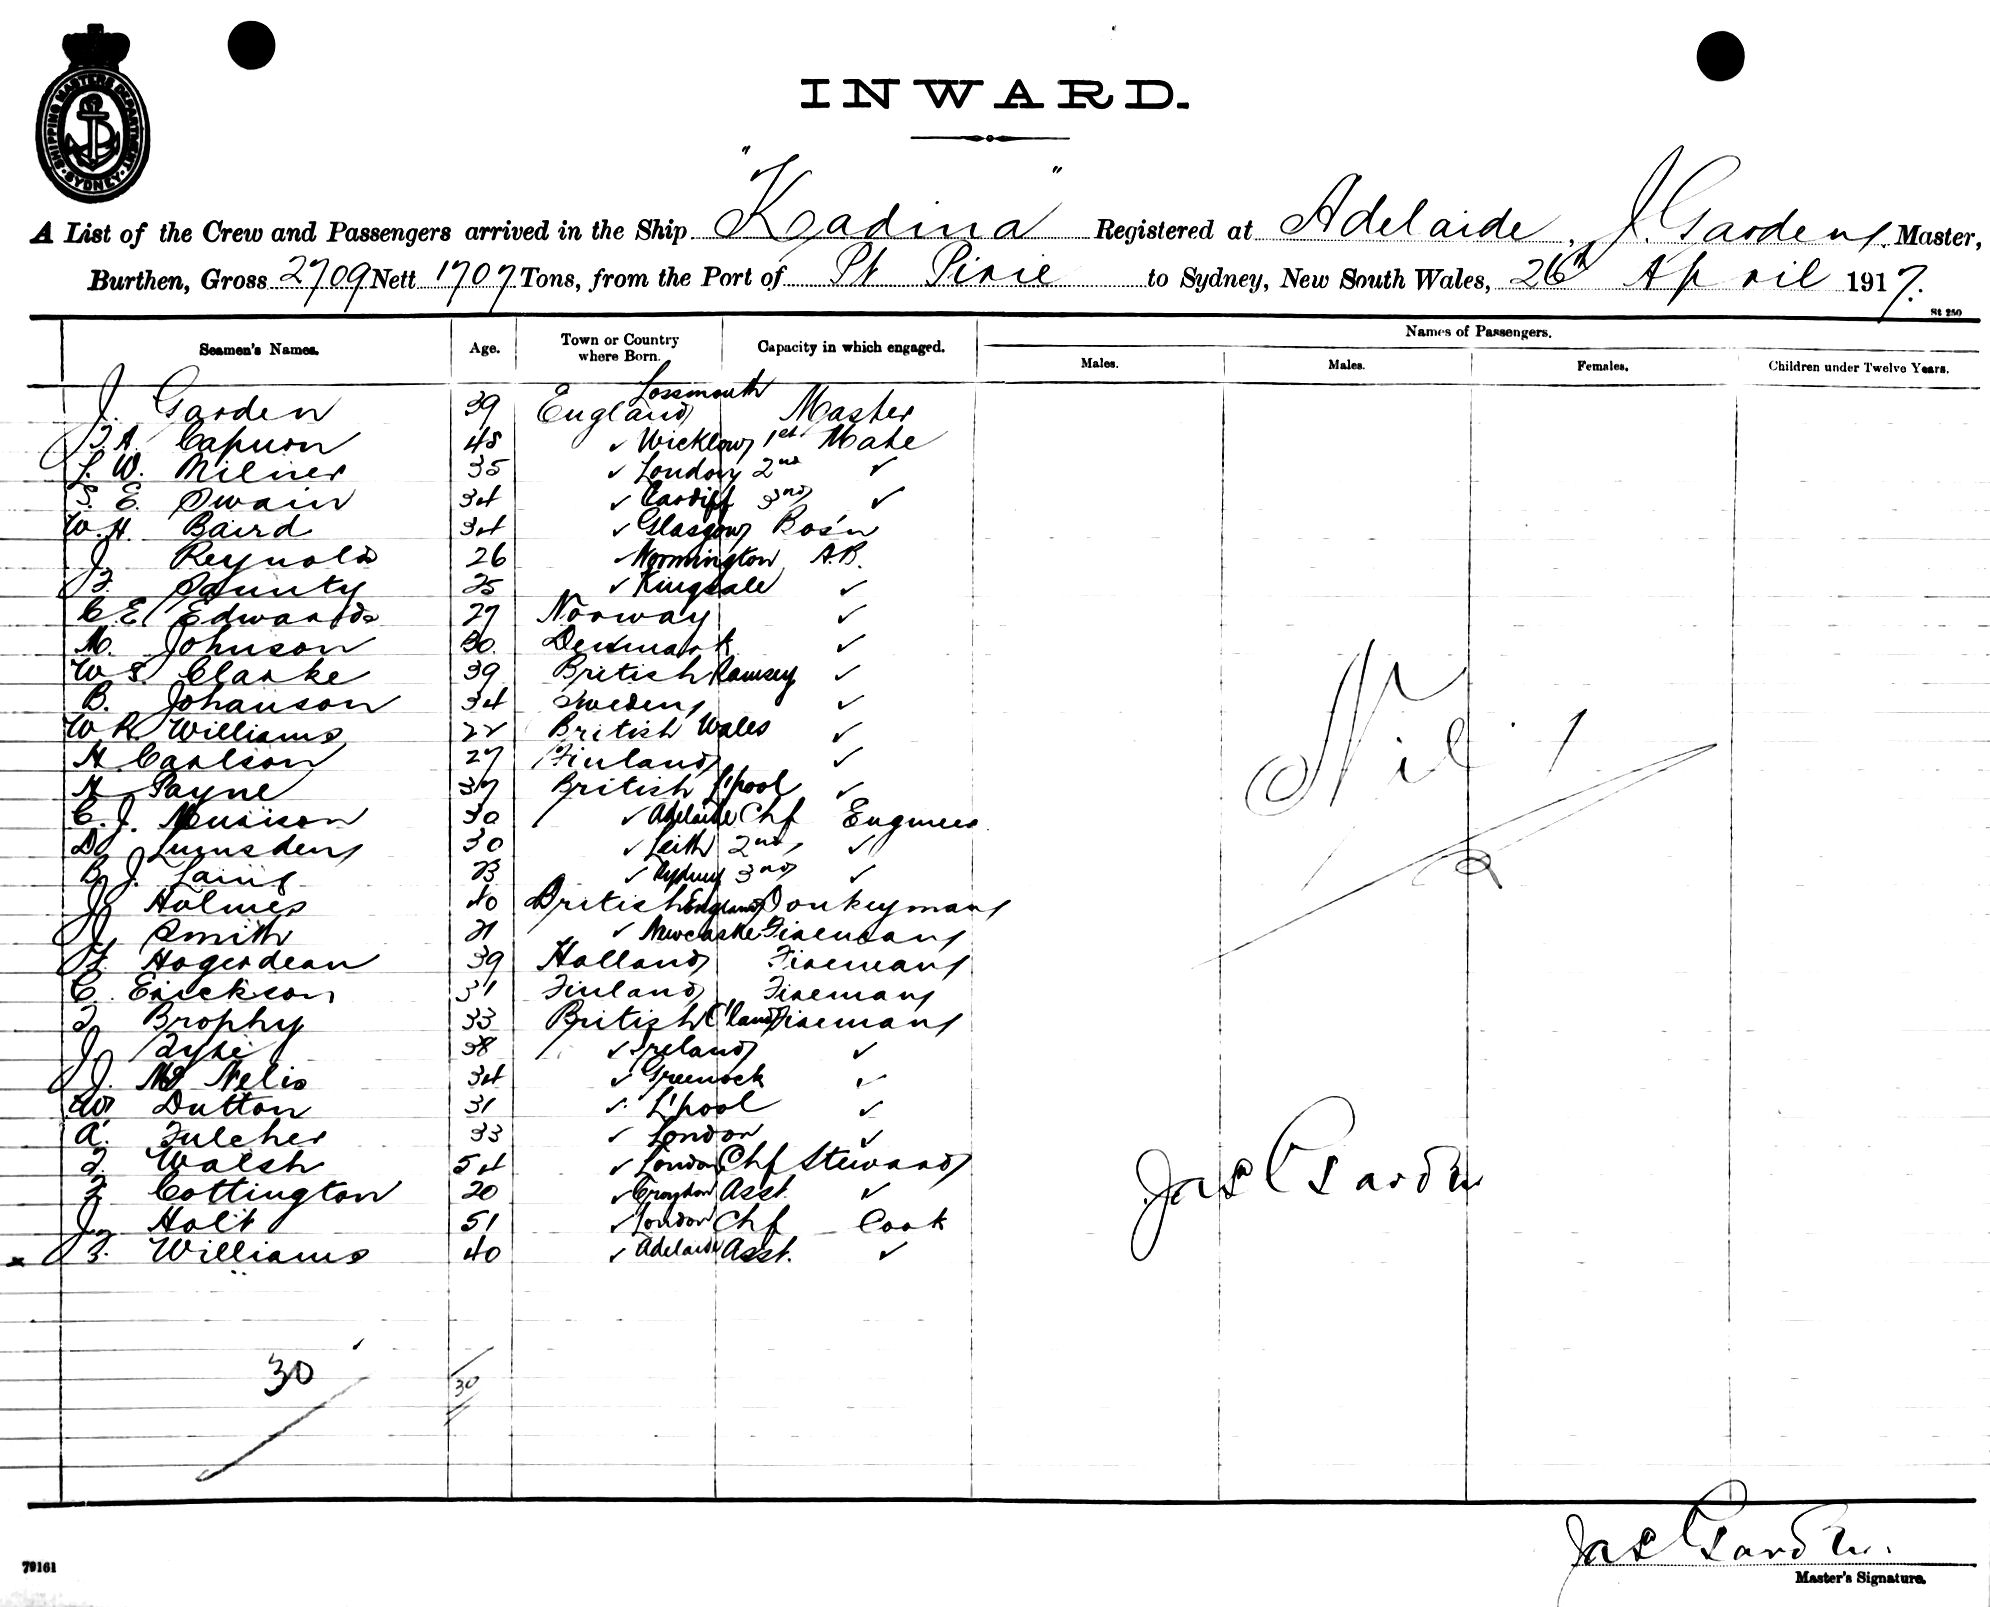 SHIPPING MASTERS DEPARTMENT
SYDNEY
INWARD.
A List of the Crew and Passengers arrived in the Ship "Kadina" Registered at Adelaide, J. Garden, Master,
Burthen, Gross 2709 Nett 1707 Tons, from the Port of Pt Pirie to Sydney, New South Wales, 26th April 1917.
St 250
Seamen's Names. Age. Town or Country where Born. Capacity in which engaged. Names of Passengers.
Males. Males. Females. Children under Twelve Years.
J. Garden 39 England Lossmouth Master
48 ✓ Wicklow 1st Mate
L. W. Milner 35 ✓ London 2nd ✓
S. E. Swain 34 ✓ Cardiff 3rd ✓
W. H. Baird 34 ✓ Glasgow Bos'n
J. Reynolds 26 ✓ A.B.
25 ✓ Kingsale ✓
C E Edwards 27 Norway ✓
M. Johnson 30. Denmark ✓
W S. Clarke 39 British Ramsey ✓
B. Johanson 34 Sweden ✓
W R Williams 22 British Wales ✓
H Carlson 27 Finland ✓
H Payne 37 British L'pool ✓
C. J. 30 ✓ Adelaide Chf Engineer
D Lumsden 30 ✓ Leith 2nd ✓
B. J. Laing 23 ✓ Sydney 3rd ✓
J Holmes 40 British England Donkeyman
J Smith 21 ✓ Newcastle Fireman
F. Hagerdean 39 Holland Fireman
C. Erickson 31 Finland Fireman
Brophy 33 British Fireman
J 38 ✓ Ireland ✓
J. Mc Nelis 34 ✓ Greenock ✓
W Dutton 31 ✓ L'pool ✓
A. Fulcher 33 ✓ London ✓
Walsh 54 ✓ London Chf Steward
F. Cottington 20 ✓ Croydon Asst. ✓
Holt 51 ✓ London Chf Cook
x Williams 40 ✓ Adelaide Asst. ✓
Nil
Jas Garden
30
30
Jas Garden.
Master's Signature.
79161